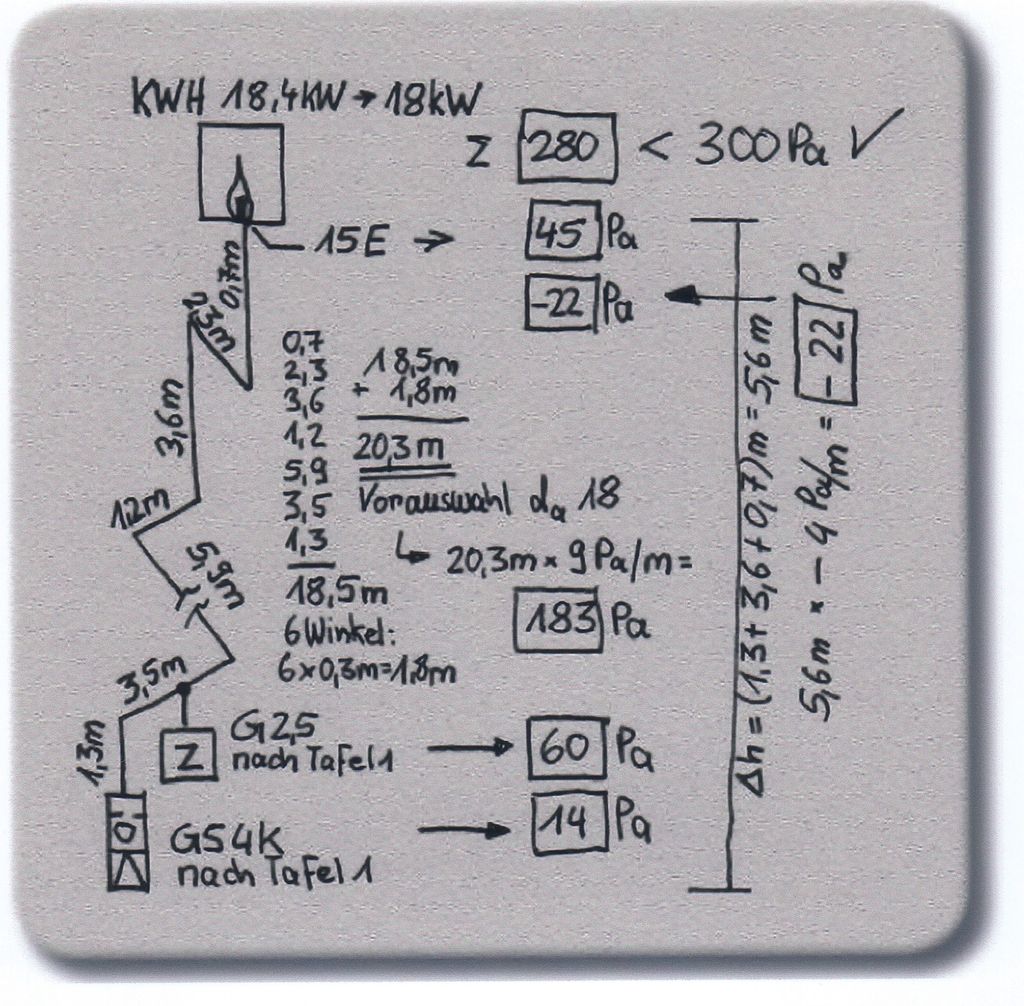 KWH 18,4KW → 18kW
Σ 280 < 300 Pa ✓
15E → 45 Pa
-22 Pa
0,7m
2,3m
3,6m
1,2m
5,9m
3,5m
1,3m
0,7
2,3
3,6
1,2
5,9
3,5
1,3
18,5m
6 Winkel:
6 x 0,3m=1,8m
18,5m
+ 1,8m
20,3 m
Vorauswahl da 18
↳ 20,3m x 9 Pa/m =
183 Pa
Z
G2,5
nach Tafel 1
→ 60 Pa
GS4K
nach Tafel 1
→ 14 Pa
Δh = (1,3 + 3,6 + 0,7) m = 5,6 m
5,6m x - 4 Pa/m = -22 Pa